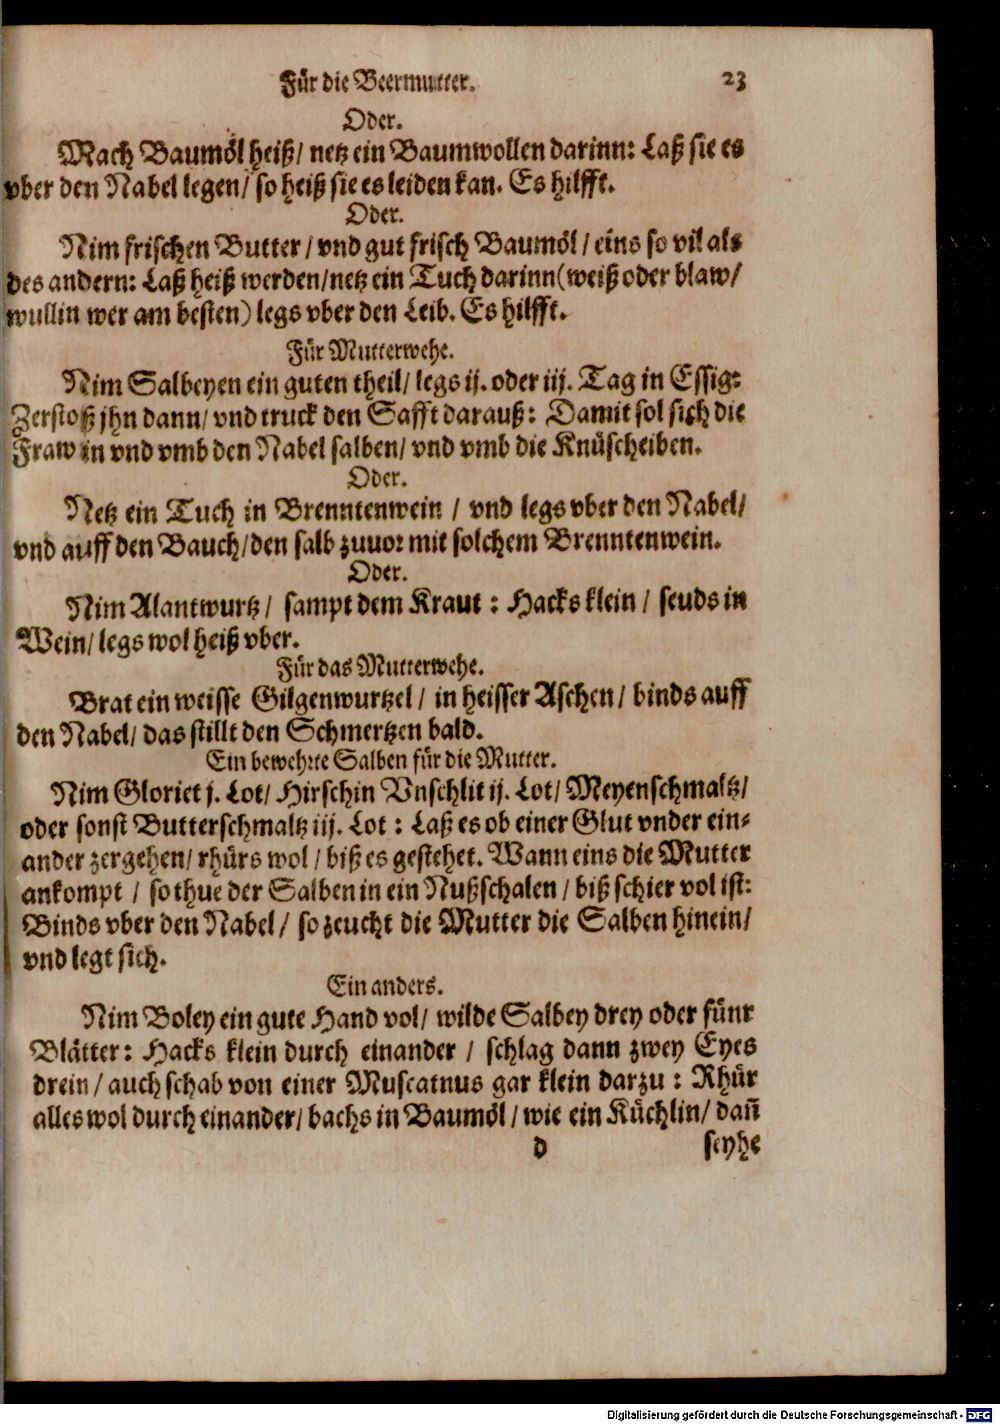 Für die Beermutter. 23
Oder.
Mach Baumöl heiß/ netz ein Baumwollen darinn: Laß sie es
vber den Nabel legen/ so heiß sie es leiden kan. Es hilfft.
Oder.
Nim frischen Butter/ vnd gut frisch Baumöl/ eins so vil als
des andern: Laß heiß werden/netz ein Tuch darinn(weiß oder blaw/
wullin wer am besten) legs vber den Leib. Es hilfft.
Für Mutterwehe.
Nim Salbeyen ein guten theil/ legs ij. oder iij. Tag in Essig:
Zerstoß jhn dann/ vnd truck den Safft darauß: Damit sol sich die
Fraw in vnd vmb den Nabel salben/ vnd vmb die Knüscheiben.
Oder.
Netz ein Tuch in Brenntenwein / vnd legs vber den Nabel/
vnd auff den Bauch/den salb zuuor mit solchem Brenntenwein.
Oder.
Nim Alantwurtz/ sampt dem Kraut: Hacks klein/ seuds in
Wein/ legs wol heiß vber.
Für das Mutterwehe.
Brat ein weisse Gilgenwurtzel/ in heisser Aschen/ binds auff
den Nabel/ das stillt den Schmertzen bald.
Ein bewehrte Salben für die Mutter.
Nim Gloriet j. Lot/ Hirschin Vnschlit ij. Lot/ Meyenschmaltz/
oder sonst Butterschmaltz iij. Lot: Laß es ob einer Glut vnder ein-
ander zergehen/ rhürs wol/ biß es gestehet. Wann eins die Mutter
ankompt / so thue der Salben in ein Nußschalen/ biß schier vol ist:
Binds vber den Nabel/ so zeucht die Mutter die Salben hinein/
vnd legt sich.
Ein anders.
Nim Boley ein gute Hand vol/ wilde Salbey drey oder fünf
Blätter: Hacks klein durch einander / schlag dann zwey Eyes
drein/ auch schab von einer Muscatnus gar klein darzu: Rhür
alles wol durch einander/ bachs in Baumöl/ wie ein Küchlin/ dañ
d seyhe
Digitalisierung gefördert durch die Deutsche Forschungsgemeinschaft - DFG